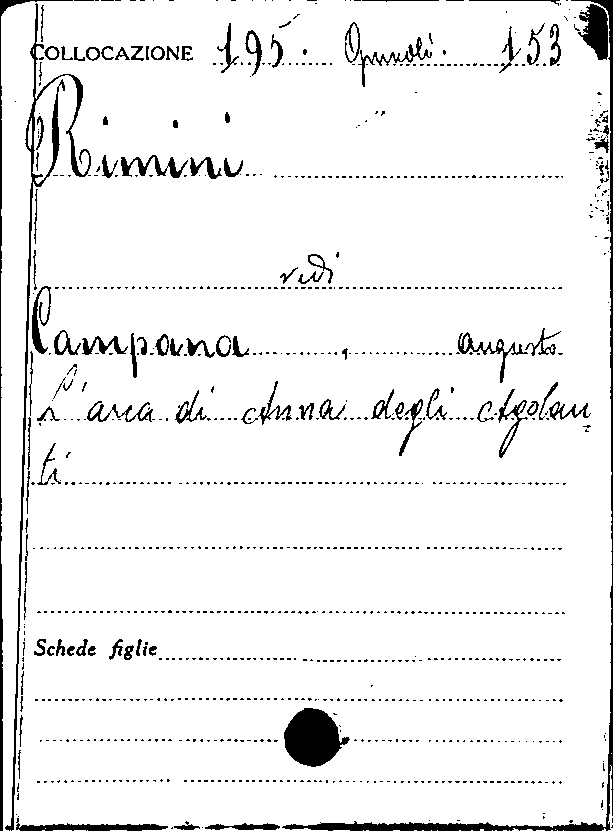 COLLOCAZIONE 195. Opuscoli. 153
Rimini
vedi
Campana, Augusto
L'arca di Anna degli Agolan-
ti
Schede figlie